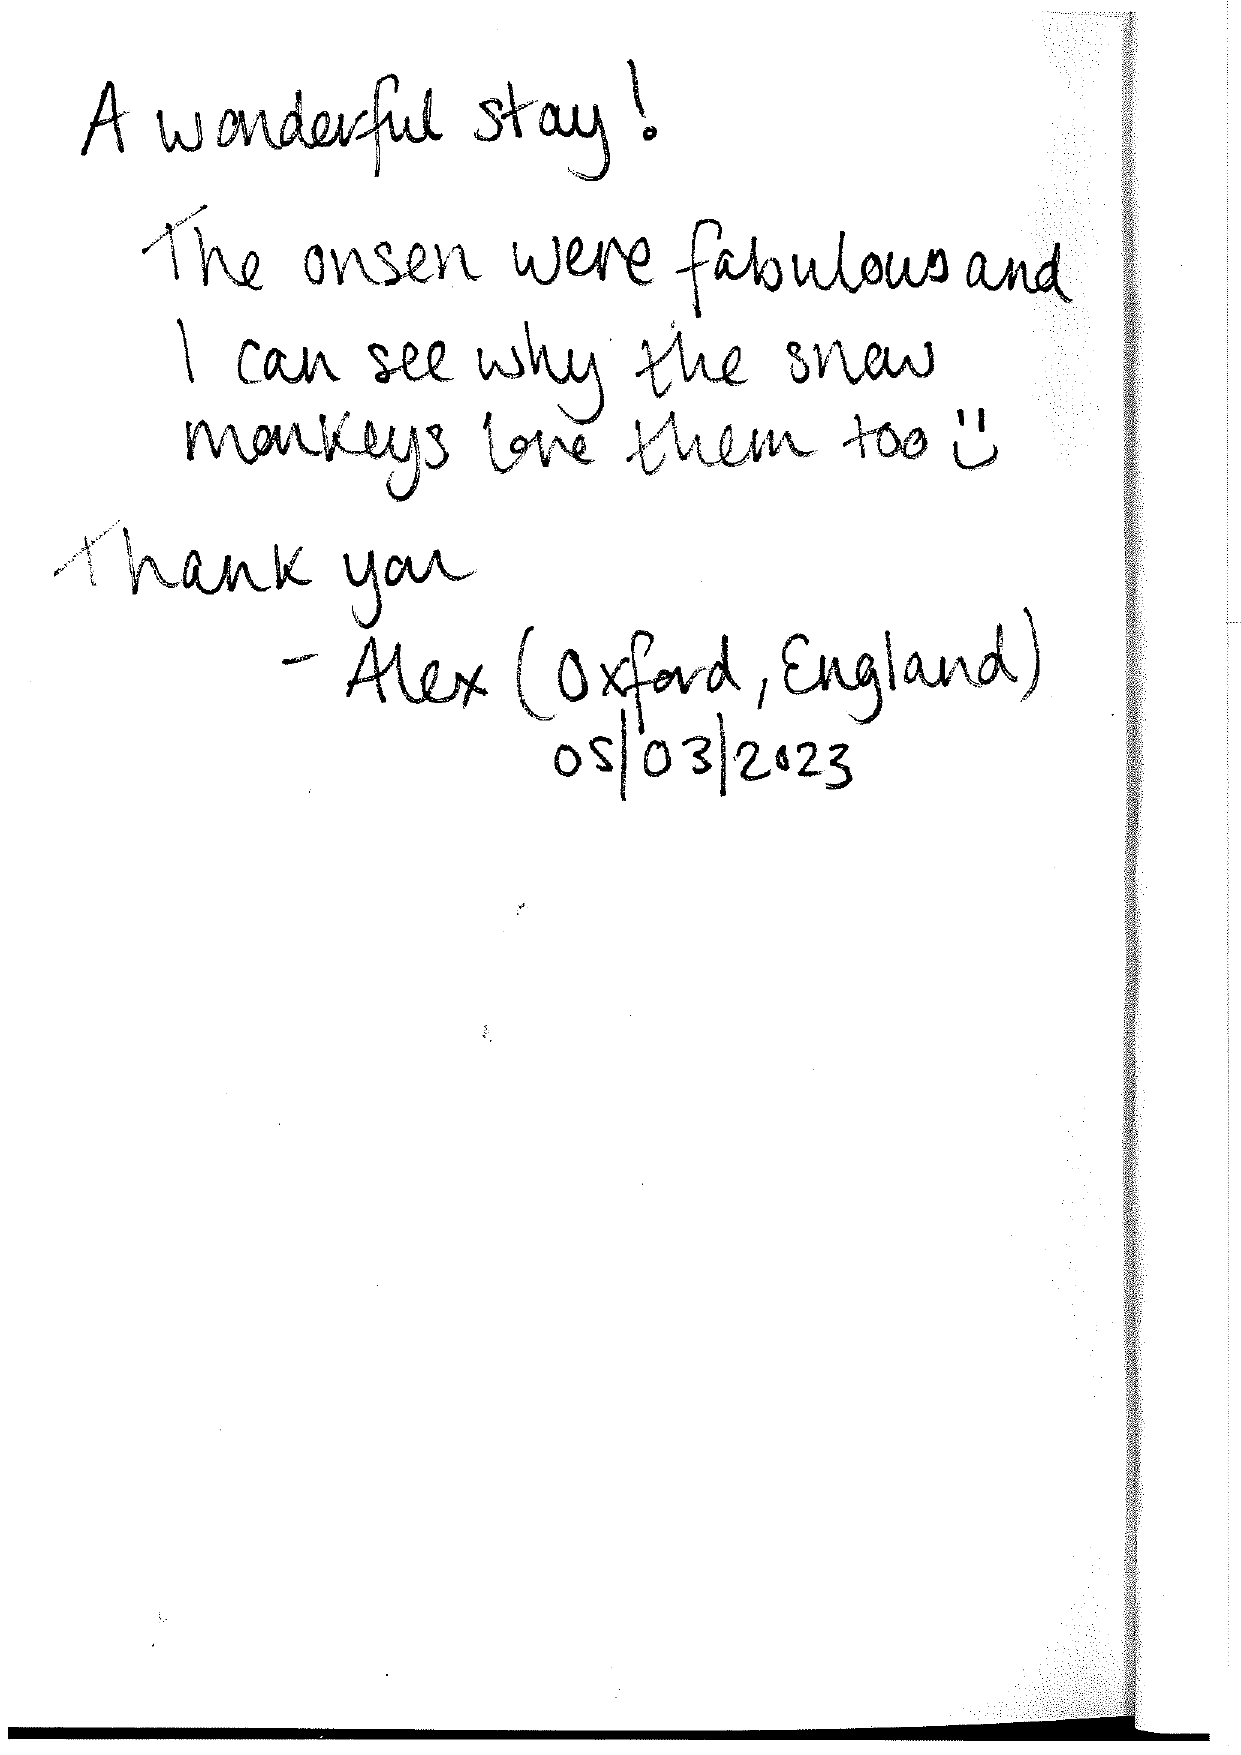 A wonderful stay!
The onsen were fabulous and
I can see why the snow
monkeys love them too :)
Thank you
- Alex (Oxford, England)
05/03/2023